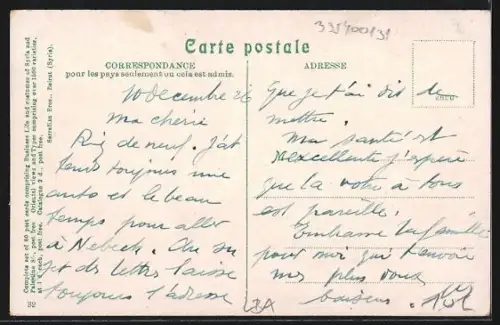 335400131
Carte postale
CORRESPONDANCE
pour les pays seulement ou cela est admis.
ADRESSE
10 Decembre 26
Ma cherie
Rien de neuf. J'at
tends toujours une
auto et le beau
temps pour aller
à Nebeck. Au su
jet des lettres laisse
toujours l'adresse
Que je t'ai dit de
mettre.
Ma santé est
excellente j'espère
que la votre à tous
est pareille.
Embrasse la famille
pour moi qui t'envoie
mes plus doux
baisers.
Complete set of 60 post cards comprising Business Life and customes of Syria and
Palestine post free. Oriental views and Types comprising over 1000 varieties,
at 1 d. each, post free. Catalogue 2 d., post free.
Sarrafian Bros., Beirut (Syria).
32